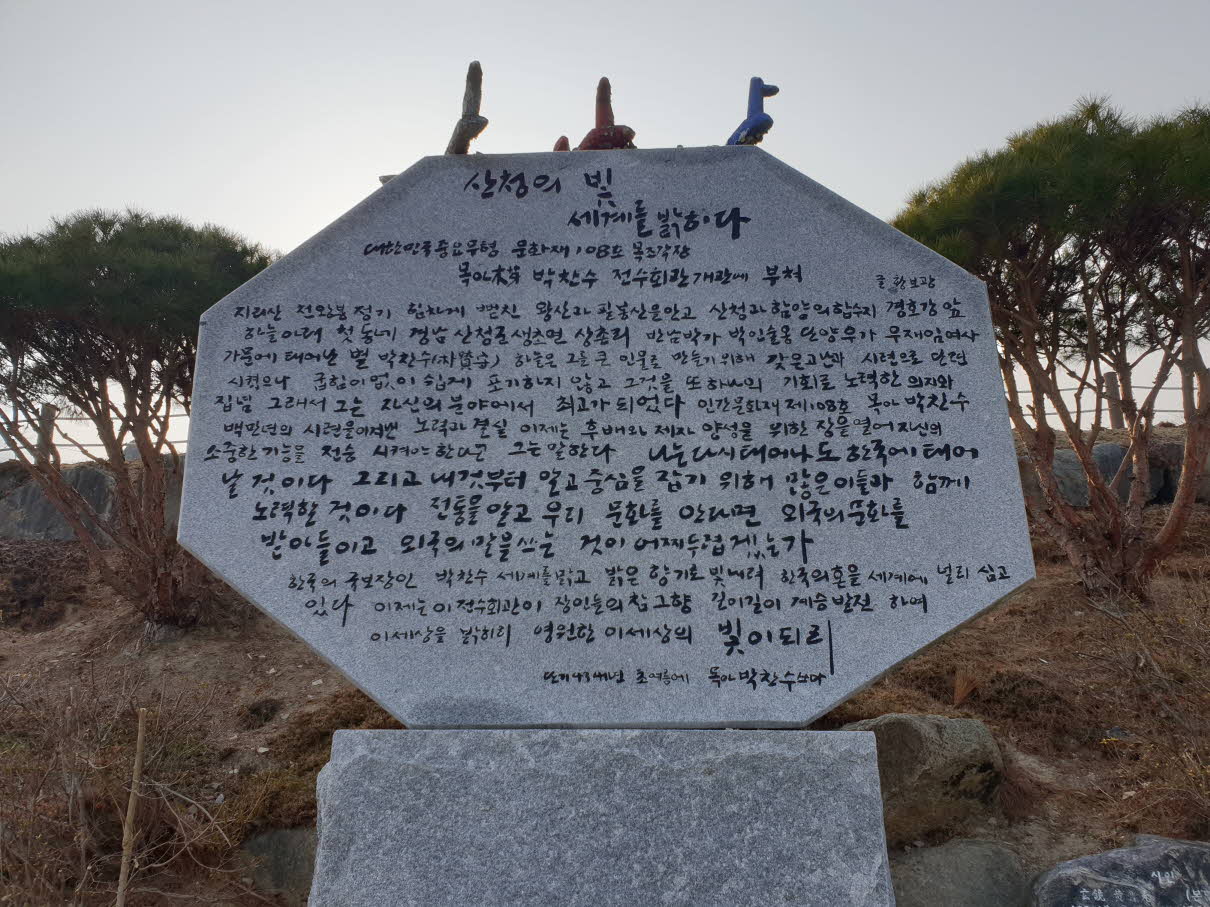 산청의 빛
세계를 밝히다
대한민국중요무형 문화재 108호 목조각장
목아木芽 박찬수 전수회관개관에 부쳐
글 한보광
지리산 천왕봉 정기 힘차게 뻗친 왕산과 필봉산을안고 산청과 함양의합수지 경호강 앞
하늘아래 첫동네 경남 산청군생초면 상촌리 반남박가 박임술옹 단양우가 우재임여사
가문에 태어난 별 박찬수(朴贊守) 하늘은 그를 큰 인물로 만들기 위해 갖은고난과 시련으로 단련
시켰으나 굽힘이 없이 쉽게 포기하지 않고 그것을 또하나의 기회로 노력한 의지와
집념 그래서 그는 자신의 분야에서 최고가 되었다 인간문화재 제108호 목아 박찬수
백만번의 시련을이겨낸 노력과 결실 이제는 후배와 제자 양성을 위한 장을 열어 자신의
소중한기능을 전승 시켜야한다고 그는 말한다 나는다시태어나도 한국에태어
날 것이다 그리고 내것부터 알고 중심을 잡기 위해 많은이들과 함께
노력할 것이다 전통을알고 우리 문화를 안다면 외국의문화를
받아들이고 외국의 말을쓰는 것이 어찌두렵겠는가
한국의 국보장인 박찬수 세계를맑고 밝은 향기로 빛내려 한국의혼을 세계에 널리 심고
있다 이제는이전수회관이 장인들의참고향 길이길이 계승발전 하여
이세상을 밝히리 영원한 이세상의 빛이되리
단기4341년 초여름에 목아박찬수쓰다
시인